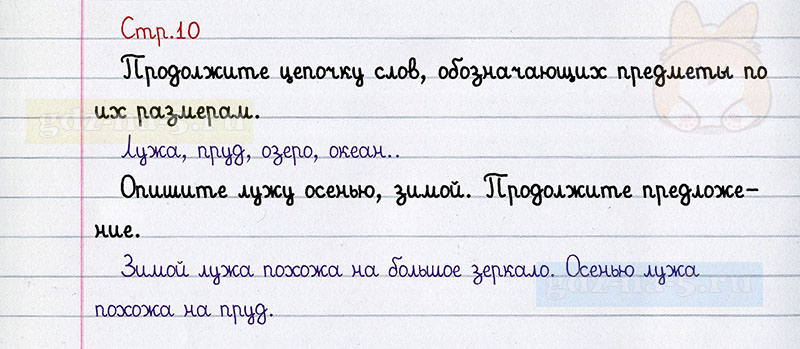 Стр.10
Продолжите цепочку слов, обозначающих предметы по
их размерам.
Лужа, пруд, озеро, океан..
Опишите лужу осенью, зимой. Продолжите предложе-
ние.
Зимой лужа похожа на большое зеркало. Осенью лужа
похожа на пруд.
gdz-na-5.ru
gdz-na-5.ru